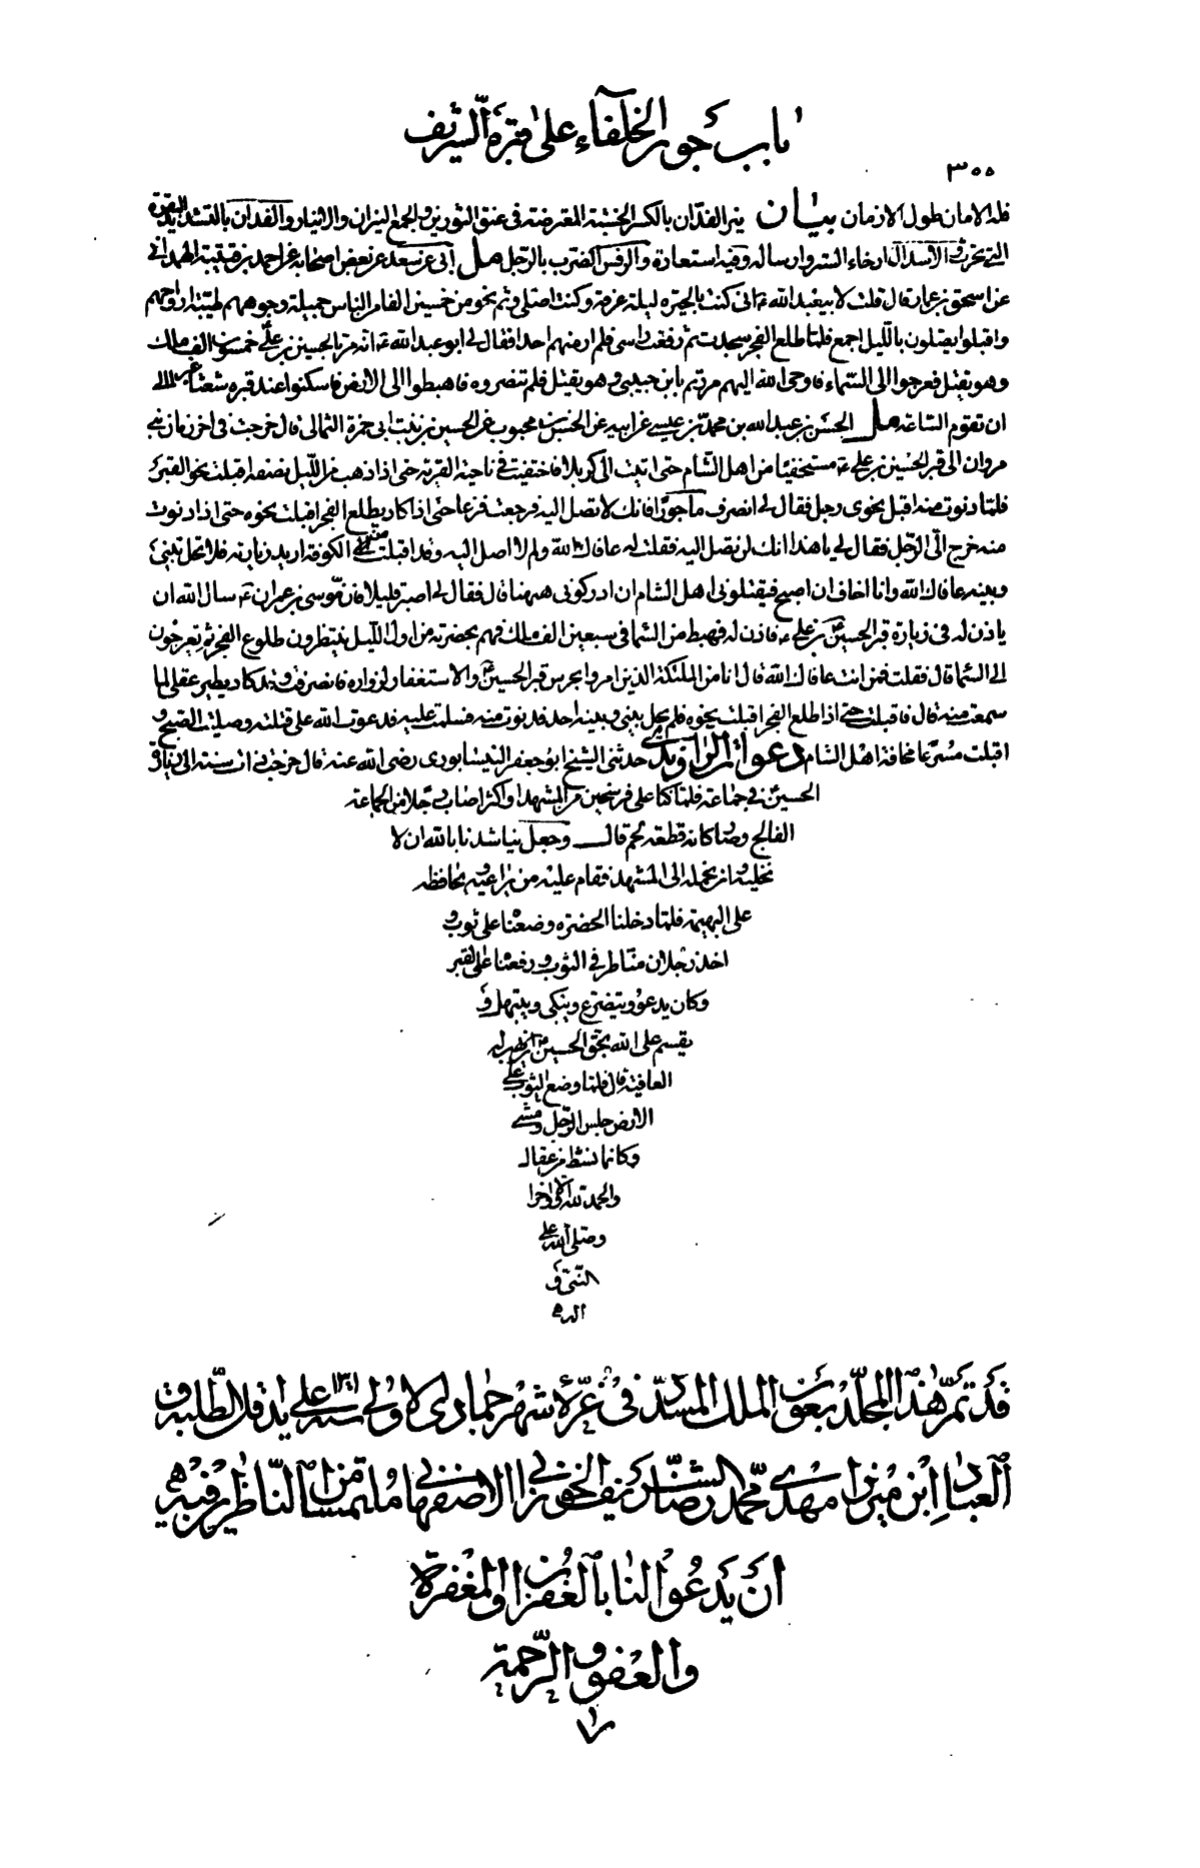 باب جور الخلفاء على قبره الشريف
٣٥٥
فله الامان طول الازمان بيان نير الفدّان بالكسر الخشبة المعترضة فى عنق الثورين والجمع النيران والانيار والفدان بالتشديد البقرة
التى تحرث والاسدال ارخاء الستر وارساله وفيه استعارة والرفس الضرب بالرجل مل ابى عن سعد عن بعض اصحابه عن احمد بن قتيبة الهمدانى
عن اسحق بن عمار قال قلت لابيعبد الله ع انى كنت بالحيرة ليلة عرفة وكنت اصلى وثم نحو من خمسين الفا من الناس جميلة وجوههم طيّبة ارواحهم
واقبلوا يصلون بالليل اجمع فلمّا طلع الفجر سجدت ثم رفعت راسى فلم ار منهم احدا فقال لى ابو عبد الله ع انه مر بالحسين بن على ع خمسون الف ملك
وهو يقتل فعرجوا الى السّماء فاوحى الله اليهم مررتم بابن حبيبى وهو يقتل فلم تنصروه فاهبطوا الى الارض فاسكنوا عند قبره شعثا غبرا الى
ان تقوم السّاعة مل الحسن بن عبد الله بن محمد بن عيسى عن ابيه عن الحسن بن محبوب عن الحسين بن بنت ابى حمزة الثمالى قال خرجت فى اخر زمان بنى
مروان الى قبر الحسين بن على ع مستخفيا من اهل الشام حتى انتهيت الى كربلا فاختفيت فى ناحية القرية حتى اذا ذهب من اللّيل نصفه اقبلت نحو القبر
فلمّا دنوت منه اقبل نحوى رجل فقال لى انصرف ماجورا فانك لا تصل اليه فرجعت فزعا حتى اذا كاد يطلع الفجر اقبلت نحوه حتى اذا دنوت
منه خرج الىّ الرّجل فقال لى يا هذا انك لن تصل اليه فقلت له عافاك الله ولم لا اصل اليه وقد اقبلت من الكوفة اريد زيارته فلا تحل بينى
وبينه عافاك الله وانا اخاف ان اصبح فيقتلونى اهل الشام ان ادركونى ههنا قال فقال لى اصبر قليلا فان موسى بن عمران ع سال الله ان
ياذن له فى زيارة قبر الحسين بن على ع فاذن له فهبط من السّماء فى سبعين الف ملك فهم بحضرته من اول الليل ينتظرون طلوع الفجر ثم يعرجون
الى السّماء قال فقلت فمن انت عافاك الله قال انا من الملئكة الذين امروا بحرس قبر الحسين والاستغفار لزواره فانصرفت وقد كاد يطير عقلى لما
سمعت منه قال فاقبلت حتى اذا طلع الفجر اقبلت نحوه فلم يحل بينى وبينه احد فدنوت منه فسلمت عليه فدعوت الله على قتلته وصليت الصبح و
اقبلت مسرعا مخافة اهل الشام دعوات الراوندى حدثنى الشيخ ابو جعفر النيشابورى رضى الله عنه قال خرجت ذات سنة الى زيارة
الحسين فى جماعة فلمّا كنّا على فرسخين من المشهد او اكثر اصاب رجلا من الجماعة
الفالج وصار كانه قطعة لحم قال وجعل يناشدنا بالله ان لا
نخليه وان نحمله الى المشهد فقام عليه من يراعيه ويحافظه
على البهيمة فلمّا دخلنا الحضرة وضعناه على ثوب و
اخذ رجلان منا طرفى الثوب ورفعناه على القبر
وكان يدعو ويتضرع ويبكى ويبتهل و
يقسم على الله بحق الحسين ان يهب له
العافية قال فلمّا وضع الثوب على
الارض جلس الرّجل ومشى
وكانما نشط من عقال
والحمد لله اولا واخرا
وصلى الله على
النبى و
اله
قد تمّ هذا المجلّد بعون الملك المسدّد فى غرّة شهر جمادى الاولى سنه على يد اقل الطلبة و
العباد ابن مهدى محمد رضا الشريف الخونسارى الاصفهانى ملتمسا من النّاظرين فيه
ان يدعوا لنا بالغفران والمغفرة
والعفو والرّحمة